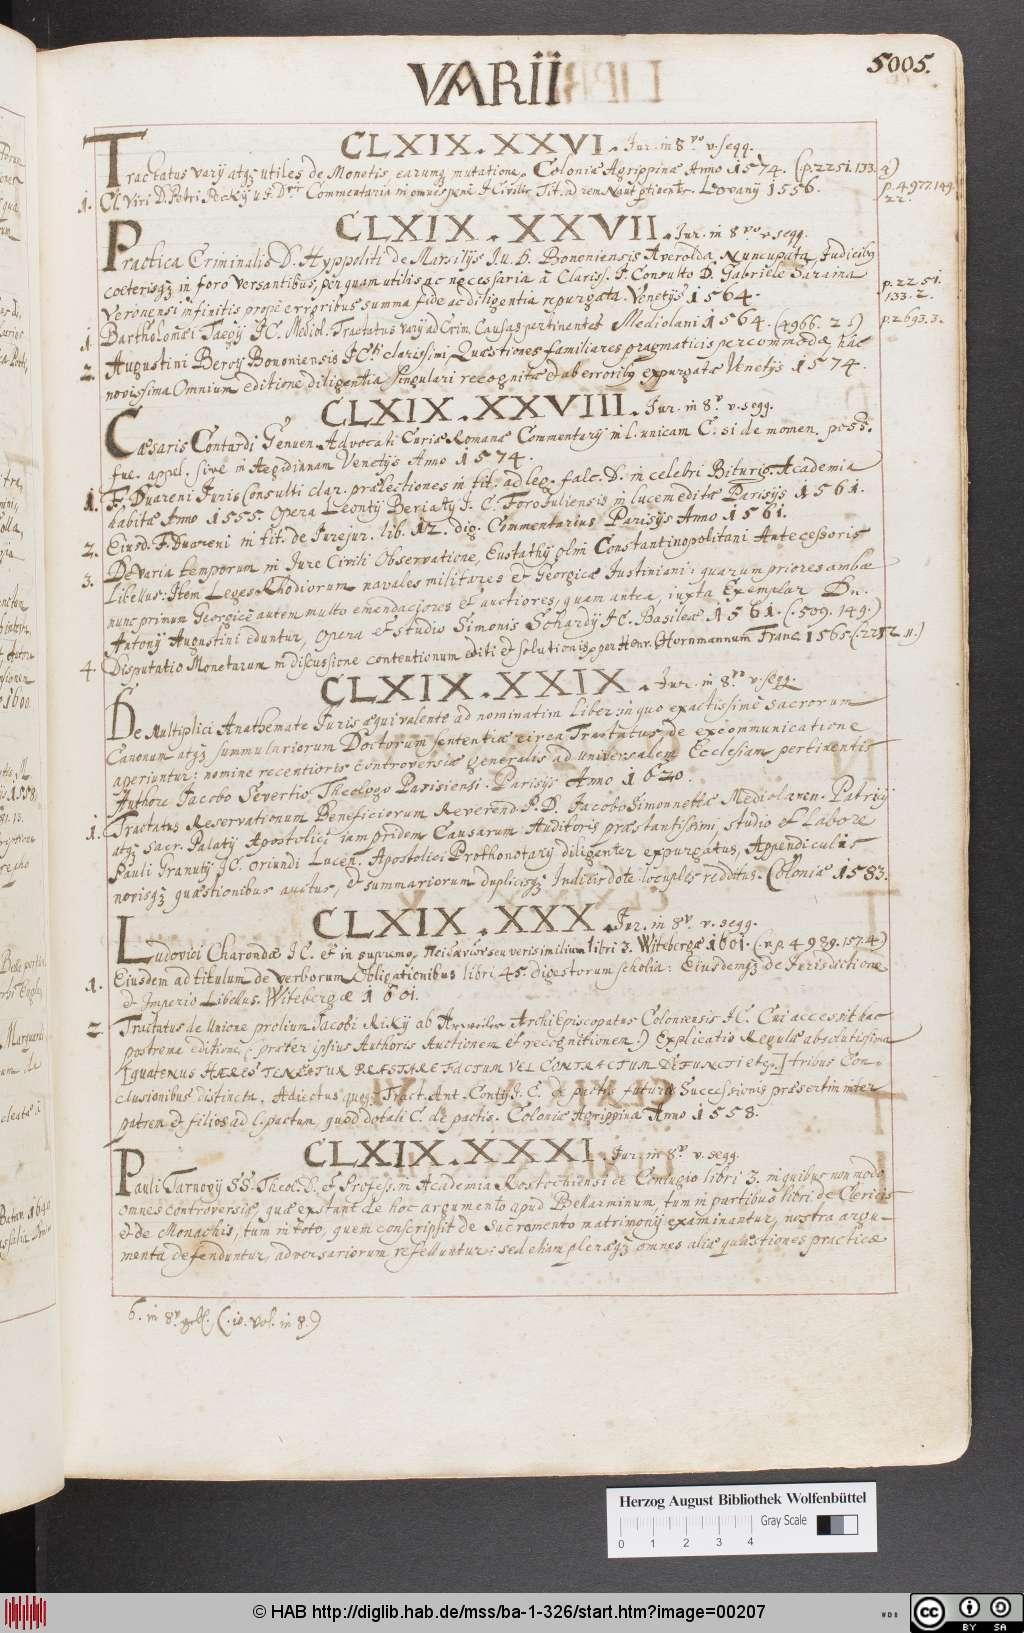 VARII
5005.
CLXIX.XXVI. Jur. in 8.vo v. seqq.
Tractatus varij atq; utiles de Monetis, earumq; mutatione. Coloniæ Agrippinæ Anno 1574. (.p.2251.133.
p. 4977.149.
22.
1. Cl. Viri D. Petri Peckij Commentaria in omnes penè Tit. ad rem Naut. Lovanij 1556.
CLXIX.XXVII. Jur. in 8.vo v. seqq.
Practica Criminalis D. Hyppoliti de Marsilijs Bononiensis Averolda Nuncupata, Judicibq
cœterisq; in foro versantibus, perquam utilis ac necessaria à Clariss. J. Consulto D. Gabriele Saraina
Veronensi infinitis propè erroribus summa fide ac diligentia repurgata. Venetijs 1564.
p. 2251.
133. 2.
1. Bartholomæi Taegij JC. Mediol. Tractatus varij ad Crim. Causas pertinentes Mediolani 1564. (4966. 21)
p. 2693. 3.
2. Augustini Beroij Bononiensis JCti clarissimi, Quæstiones familiares pragmaticis percommodæ, hac
novissima Omnium editione diligentia singulari recognitæ & ab erroribq expurgatæ Venetijs 1574.
CLXIX.XXVIII. Jur. in 8.o v. seqq.
Cæsaris Contardi Genuen. Advocati Curiæ Romanæ Commentarij in l. unicam C. si de momen. poss.
fue. appel. sive in Aegidianam Venetijs Anno 1574.
1. F. Duareni Juris Consulti clar. prælectiones in tit. ad leg. falc. D. in celebri Biturig. Academia
habitæ Anno 1555. opera Leontij Beriatij J. C. Forojuliensis in lucem editæ Parisijs 1561.
2. Eiusd. F. Duareni in tit. de Jurejur. lib. 12. dig. Commentarius Parisijs Anno 1561.
3. De varia temporum in Jure Civili Observatione, Eustathij olim Constantinopolitani Antecessoris
Libellus: Item Leges Rhodiorum navales militares et Georgicæ Justiniani: quarum priores ambæ
nunc primum Georgicè autem multo emendaciores et auctiores, quam antea, iuxta Exemplar Dn.
Antonij Augustini eduntur, opera et studio Simonis Schardij JC. Basileæ. 1561. (.509. 149.)
4. Disputatio Monetarum in discussione contentionum editi et solutionis per Henr. Hornmannum Franc. 1565.
CLXIX.XXIX. Jur. in 8.vo v. seqq.
De Multiplici Anathemate Juris æquivalente ad nominatim Liber: in quo exactissimè sacrorum
Canonum atq; summulariorum Doctorum sententiæ circa Tractatus de excommunicatione
aperiuntur: nomine recentioris controversiæ generalis ad universalem Ecclesiam pertinentis
Authore Jacobo Severtio Theologo Parisiensi. Parisijs Anno 1620.
1. Tractatus Reservationum Beneficiorum Reverend. P.D. Jacobo Simonnettæ Mediolanen. Patricij
atq; sacr. Palatij Apostolici iam pridem Causarum Auditoris præstantissimi, studio et labore
Pauli Granutij JC. oriundi Lucen. Apostolici Prothonotarij diligenter expurgatus, Appendiculis
norisq; quæstionibus auctus, et summariorum duplicisq; Indicis dote locuples redditus. Coloniæ 1583.
CLXIX.XXX. Jur. in 8.o v. seqq.
Ludovici Charondæ JC. et in supremo, seu verisimilium libri 3. Witebergæ 1601. (.v. p. 4989. 157.4)
1. Eiusdem ad titulum de verborum Obligationibus libri 45. digestorum scholia: Eiusdemq; de Jurisdictione
& Imperio Libellus. Witebergæ 1601.
2 Tractatus de Unione prolium Jacobi Rikij ab ArchiEpiscopatus Coloniensis JC. Cui accessit hac
postrema editione, (præter ipsius Authoris Auctionem et recognitionem.) Explicatio Regulæ absolutissima
[quatenus HÆRES TENETUR PRÆSTARE FACTUM VEL CONTRACTUM DEFUNCTI etc.] tribus Con-
clusionibus distincta. Adiectus quoq; Tract. Ant. Contij J. C. de pactis futuræ Successionis præsertim inter
patrem & filios ad l. pactum, quod dotali C. de pactis. Coloniæ Agrippinæ Anno 1558.
CLXIX.XXXI. Jur. in 8.o v. seqq.
Pauli Tarnovij SS. Theol. D. et Profess. in Academia Rostochiensi de Conjugio libri 3. in quibus non modo
omnes controversiæ, quæ extant de hoc argumento apud Bellarminum, tum in partibus libri de Clericis
et de Monachis, tum in toto, quem conscripsit de Sacramento matrimonij examinantur, nostra argu-
menta defenduntur, adversariorum refelluntur: sed etiam pleræq; omnes aliæ quæstiones practicæ
6. in 8.o (.10. vol. in 8.)
Herzog August Bibliothek Wolfenbüttel
Gray Scale
0 1 2 3 4
© HAB http://diglib.hab.de/mss/ba-1-326/start.htm?image=00207
WDB
cc BY SA